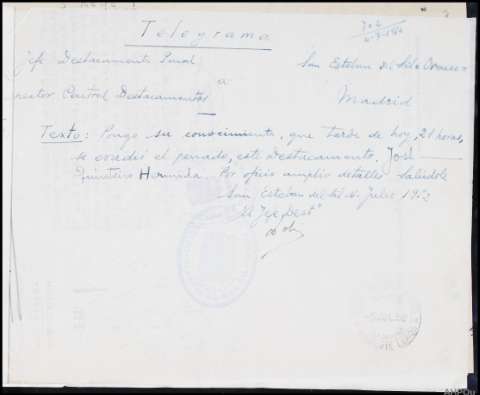 Telegrama
Jefe Destacamento Penal San Esteban del Sil Orense
a
rector Central Destacamentos Madrid
Texto: Pongo su conocimiento, que tarde de hoy, 21 horas,
se evadió el penado, este Destacamento, José
Quinteiro Hermida. Por oficio amplio detalles. Salúdole
San Esteban del Sil Julio 1952
El Jefe Destº